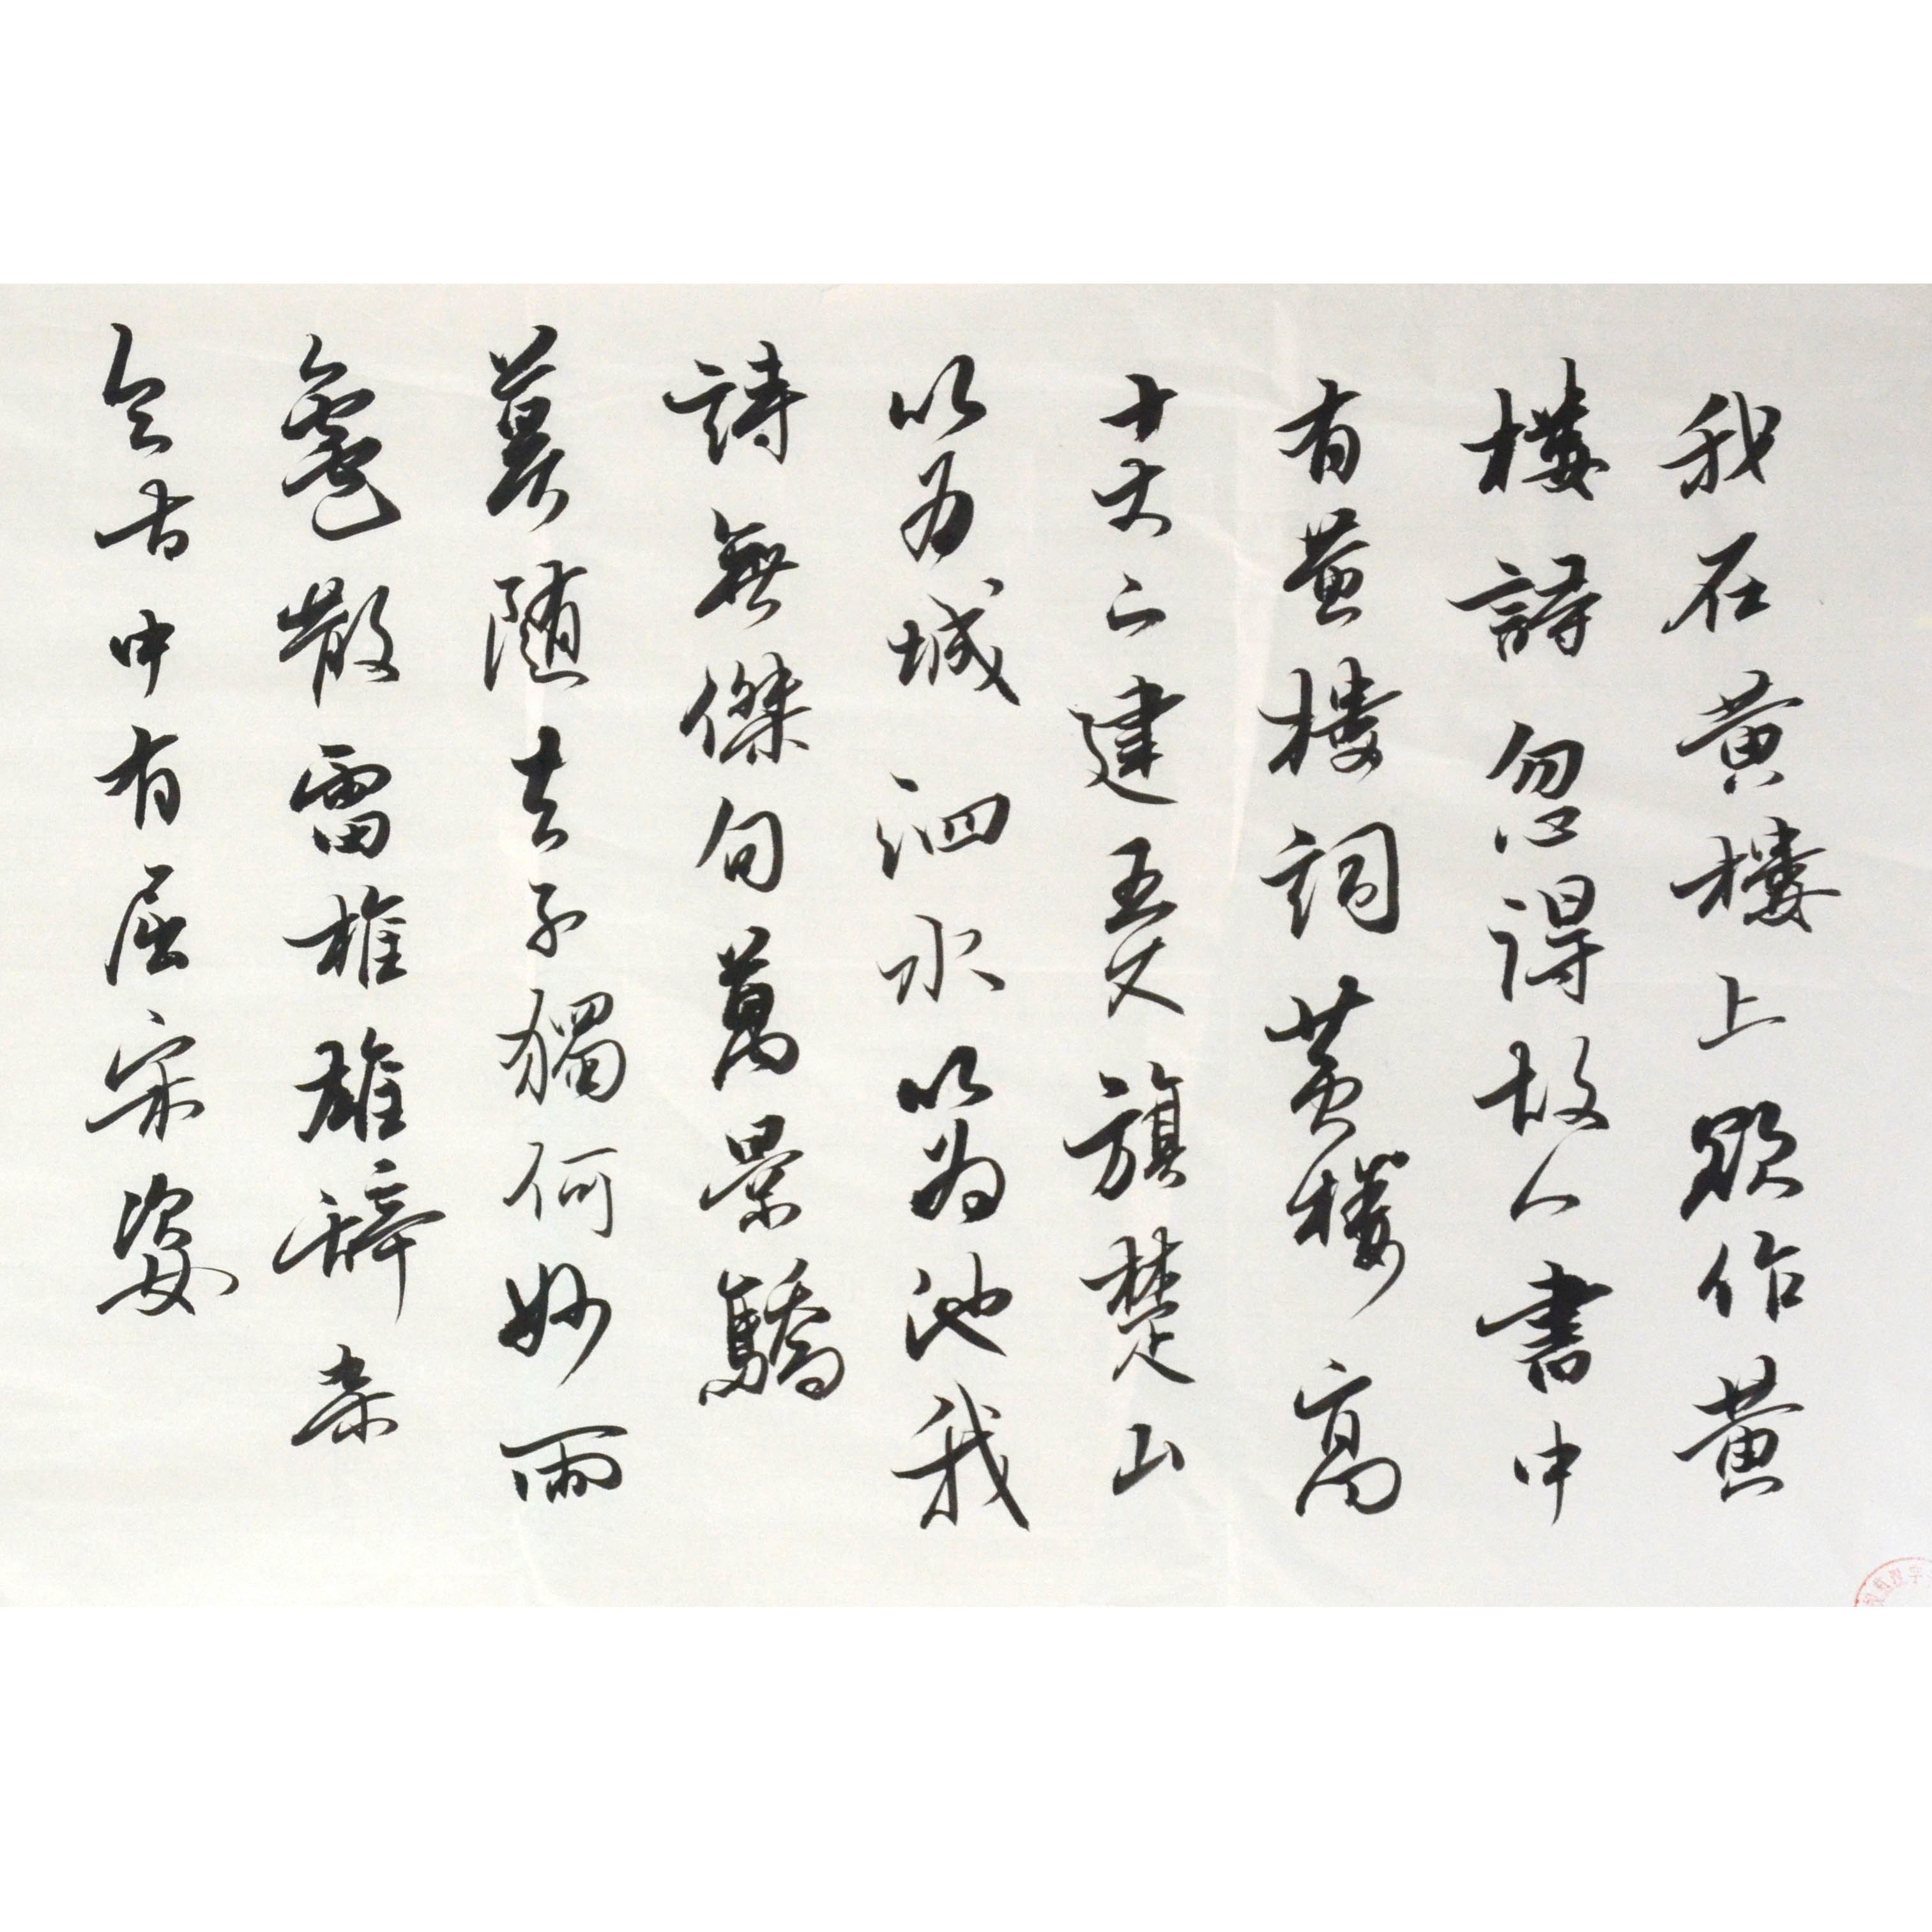 我在黄樓上欲作黄
樓詩忽得故人書中
有黄樓詞黄樓高
十丈下建五丈旗楚山
以为城泗水以為池我
詩無傑句萬景驕
莫随夫子獨何妙雨
雹散雷椎雄辞杂
今古中有屈宋姿